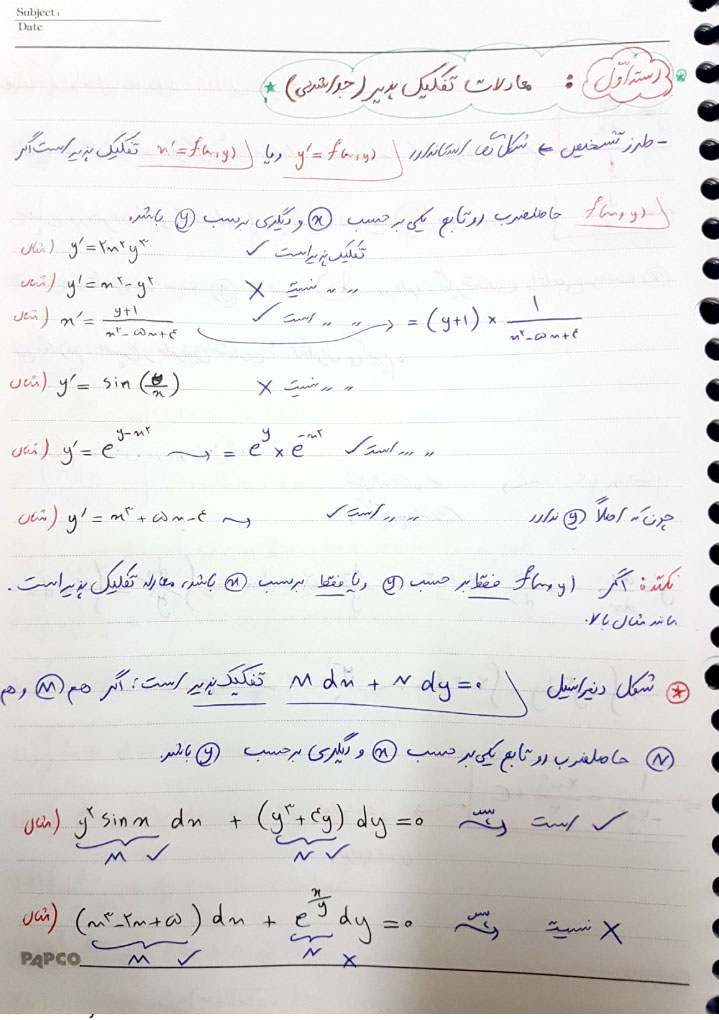 Subject:
Date
دسته اوّل : معادلات تفکیک پذیر (جداشدنی)
- طرز تشخیص ← شکل استاندارد y' = f(x,y) ویا x' = f(x,y) تفکیک پذیر است اگر
f(x,y) حاصلضرب دو تابع یکی بر حسب x و دیگری برحسب y باشد.
مثال) y' = ۲x^۲ y^۳ ✓ تفکیک پذیر است
مثال) y' = x^۲ - y^۲ × " " نیست
مثال) x' = (y+۱)/(x^۲ - ۵x + ۴) ✓ " " است = (y+1) × 1/(x^۲ - ۵x + ۴)
مثال) y' = sin (y/x) × " " نیست
مثال) y' = e^(y-x^۲) ⇝ = e^y × e^(-x^۲) ✓ " " است
مثال) y' = x^۳ + ۵x - ۴ ⇝ ✓ " " است چون که اصلاً y ندارد
نکته: اگر f(x,y) فقط بر حسب y ویا فقط برحسب x باشد، معادله تفکیک پذیر است.
مانند مثال بالا.
شکل دیفرانسیل M dx + N dy = ۰ تفکیک پذیر است؛ اگر هم M و هم
N حاصلضرب دو تابع یکی بر حسب x و دیگری برحسب y باشد.
مثال) y^۲ sin x dx + (y^۳ + ۴y) dy = ۰ پس ✓ است
M ✓ N ✓
مثال) (x^۳ - ۲x + ۵) dx + e^(x/y) dy = ۰ پس × نیست
M ✓ N ×
PAPCO